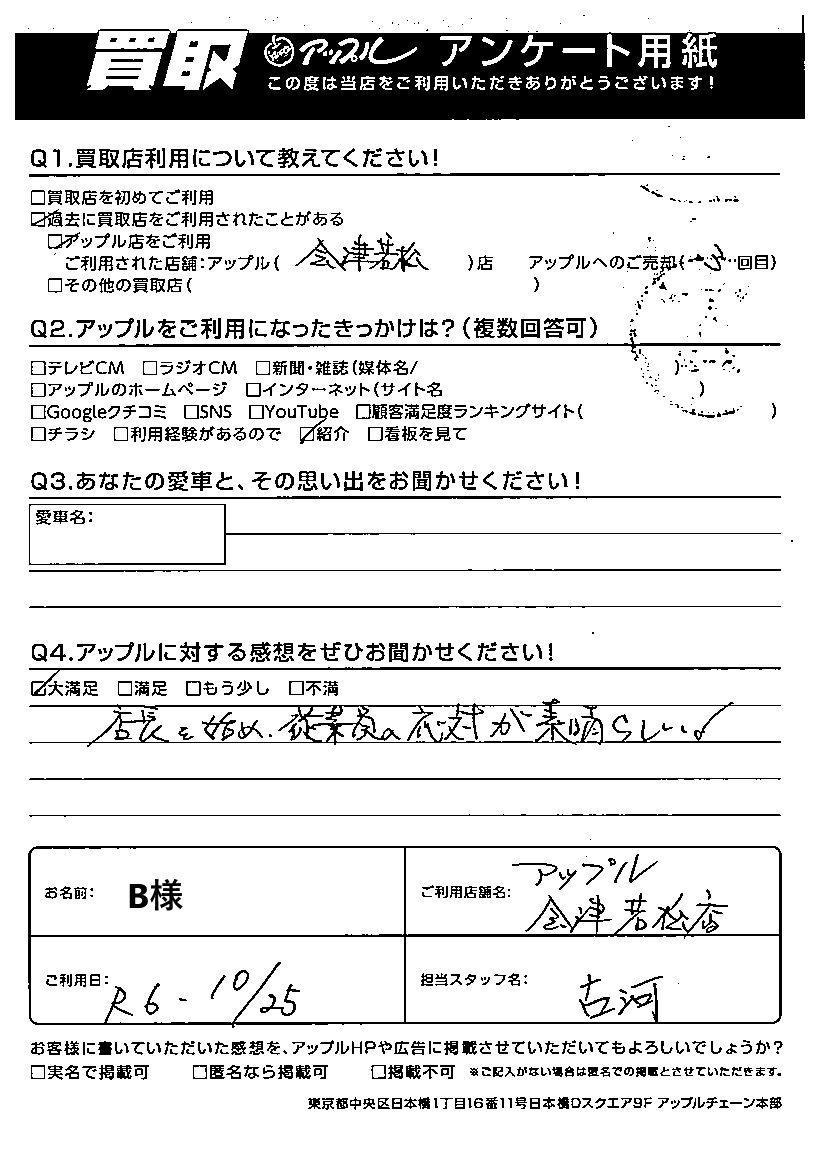 買取 アップル アンケート用紙
この度は当店をご利用いただきありがとうございます!
Q1.買取店利用について教えてください!
□買取店を初めてご利用
☑過去に買取店をご利用されたことがある
☑アップル店をご利用
ご利用された店舗:アップル( 会津若松 )店 アップルへのご売却( 3 回目)
□その他の買取店( )
Q2.アップルをご利用になったきっかけは?(複数回答可)
□テレビCM □ラジオCM □新聞・雑誌(媒体名/ )
□アップルのホームページ □インターネット(サイト名 )
□Googleクチコミ □SNS □YouTube □顧客満足度ランキングサイト( )
□チラシ □利用経験があるので ☑紹介 □看板を見て
Q3.あなたの愛車と、その思い出をお聞かせください!
愛車名:
Q4.アップルに対する感想をぜひお聞かせください!
☑大満足 □満足 □もう少し □不満
店長を始め、従業員の応対が素晴らしい
お名前: B様
ご利用店舗名: アップル
会津若松店
ご利用日: R6-10/25
担当スタッフ名: 古河
お客様に書いていただいた感想を、アップルHPや広告に掲載させていただいてもよろしいでしょうか?
□実名で掲載可 □匿名なら掲載可 □掲載不可 ※ご記入がない場合は匿名での掲載とさせていただきます。
東京都中央区日本橋1丁目16番11号日本橋Dスクエア9F アップルチェーン本部